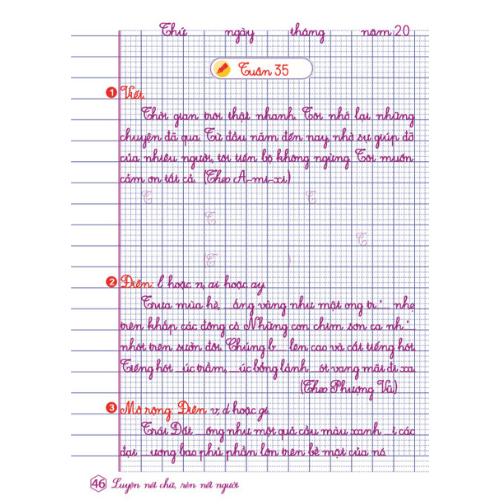 Thứ ngày tháng năm 20
Tuần 35
1 Viết:
Thời gian trôi thật nhanh. Tôi nhớ lại những
chuyện đã qua. Từ đầu năm đến nay, nhờ sự giúp đỡ
của nhiều người, tôi tiến bộ không ngừng. Tôi muốn
cảm ơn tất cả. (Theo A-mi-xi)
T T
T
T
T )
2 Điền: l hoặc n, ai hoặc ay.
Trưa mùa hè, ...ắng vàng như mật ong tr... nhẹ
trên khắp các đồng cỏ. Những con chim sơn ca nh...
nhót trên sườn đồi. Chúng b... lên cao và cất tiếng hót.
Tiếng hót ...úc trầm, ...úc bổng lảnh ...ót vang mãi đi xa.
(Theo Phượng Vũ)
3 Mở rộng: Điền: v, d hoặc gi.
Trái Đất ...ống như một quả cầu màu xanh ...ì các
đại ...ương bao phủ phần lớn trên bề mặt của nó.
46 Luyện nét chữ, rèn nết người